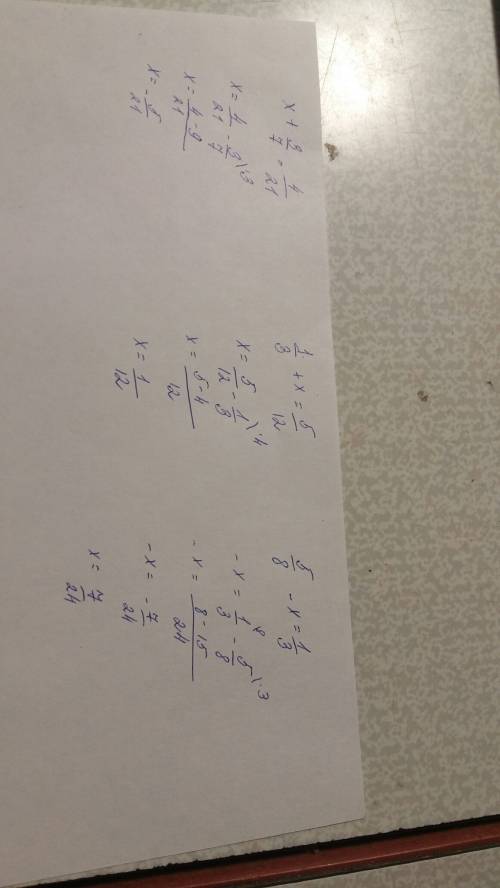 x + 3/7 = 4/21
x = 4/21 - 3/7 \·3
x = (4 - 9)/21
x = - 5/21
1/3 + x = 5/12
x = 5/12 - 1/3 \·4
x = (5 - 4)/12
x = 1/12
5/8 - x = 1/3
- x = 1/3 \8 - 5/8 \·3
- x = (8 - 15)/24
- x = - 7/24
x = 7/24